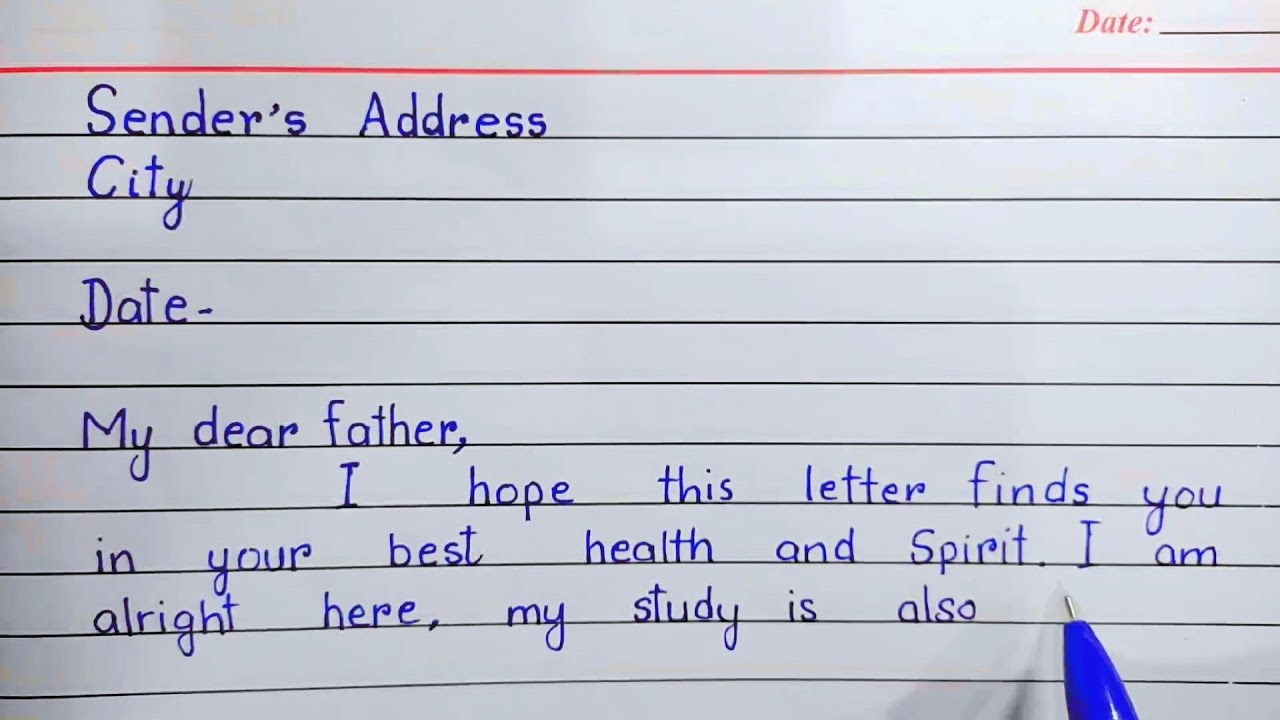 Date:
Sender's Address
City
Date-
My dear father,
I hope this letter finds you
in your best health and Spirit. I am
alright here, my study is also